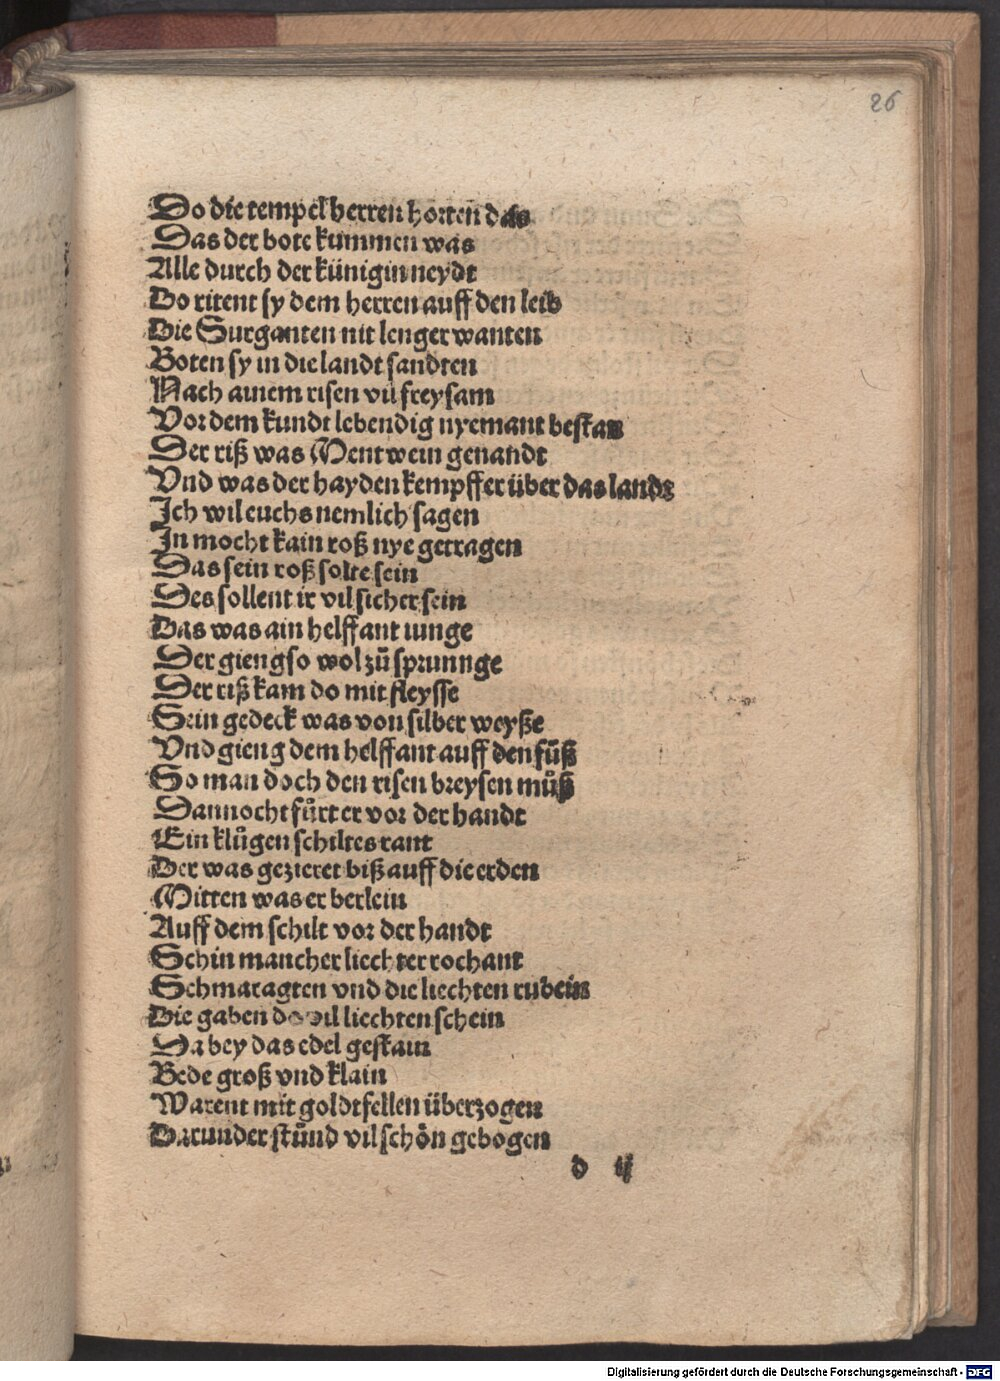 26
Do die tempel herren horten das
Das der bote kummen was
Alle durch der künigin neydt
Do ritent sy dem herren auff den leib
Die Surganten nit lenger wanten
Boten sy in die landt sandten
Nach ainem risen vil freysam
Vor dem kundt lebendig nyemant bestan
Der riß was Mentwein genandt
Vnd was der hayden kempffer über das landt
Ich wil euchs nemlich sagen
In mocht kain roß nye getragen
Das sein roß solte sein
Des sollent ir vil sicher sein
Das was ain helffant iunge
Der gieng so wol zů sprunnge
Der riß kam do mit fleysse
Sein gedeck was von silber weyße
Vnd gieng dem helffant auff den fůß
So man doch den risen breysen můß
Dannocht fůrt er vor der handt
Ein klůgen schiltes rant
Der was gezieret biß auff die erden
Mitten was er berlein
Auff dem schilt vor der handt
Schin mancher liechter rochant
Schmaragten vnd die liechten rubein
Die gaben do vil liechten schein
Da bey das edel gestain
Bede groß vnd klain
Warent mit goldtfellen überzogen
Darunder stůnd vil schön gebogen
d ij
Digitalisierung gefördert durch die Deutsche Forschungsgemeinschaft - DFG